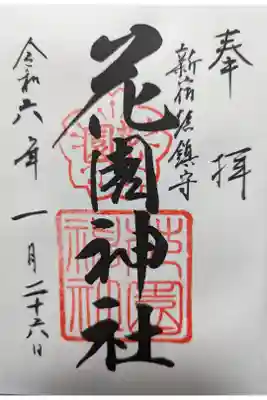 奉拝
新宿総鎮守
花園神社
令和六年一月二十六日
花園神社